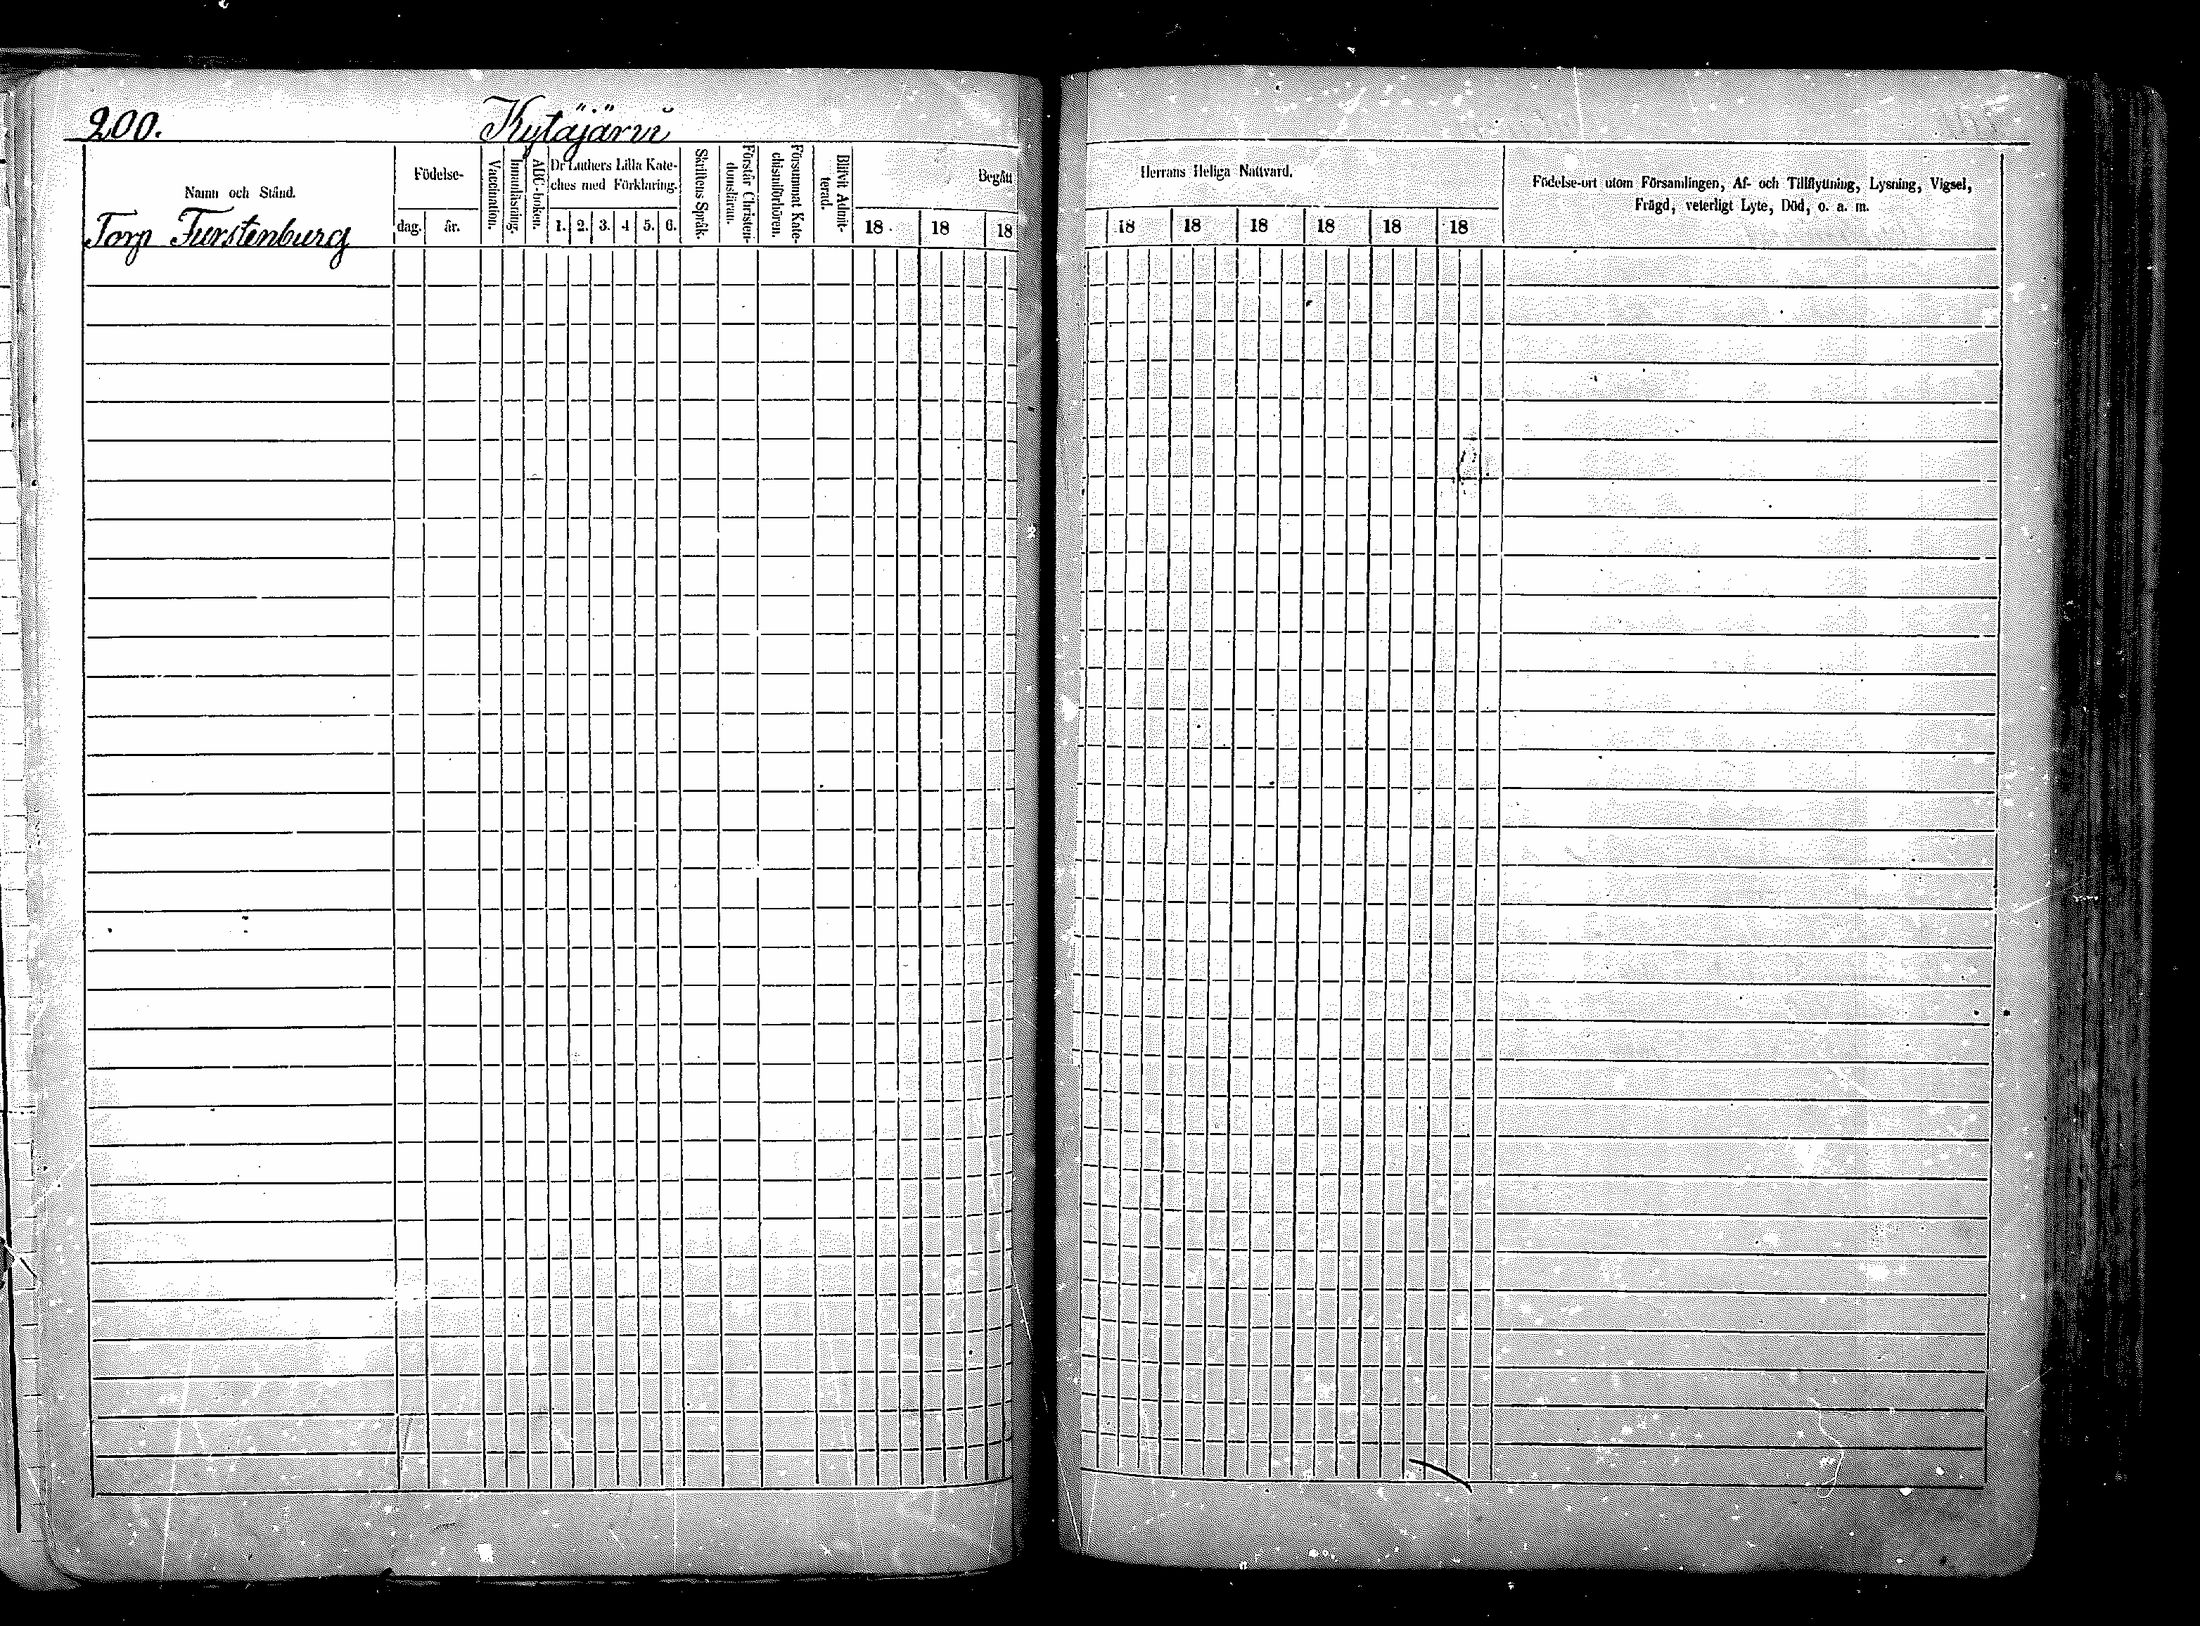 200.
Kytäjärvi
Namn och Stånd.
Torp Furstenburg
Födelse-
dag. år.
Vaccination.
Innanläsning.
ABC-boken.
Dr Luthers Lilla Kate-
ches med Förklaring.
1. 2. 3. 4 5. 6.
Skriftens Språk.
Förstår Christen-
domsläran.
Försummat Kate-
chismiförhören.
Blifvit Admit-
terad.
Begått
18 18 18
Herrans Heliga Nattvard.
18 18 18 18 18 18
Födelse-ort utom Församlingen, Af- och Tillflyttning, Lysning, Vigsel,
Frägd, veterligt Lyte, Död, o. a. m.